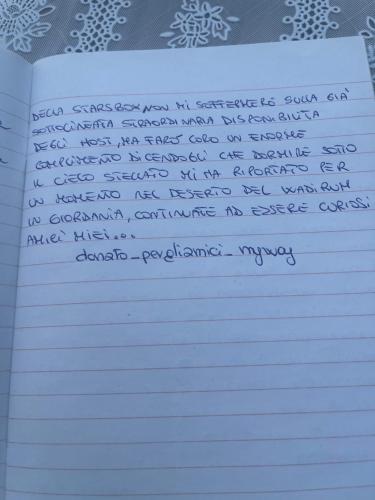 DELLA STARSBOX NON MI SOFFERMERÒ SULLA GIÀ
SOTTOLINEATA STRAORDINARIA DISPONIBILITÀ
DEGLI HOST, MA FARÒ LORO UN ENORME
COMPLIMENTO DICENDOGLI CHE DORMIRE SOTTO
IL CIELO STELLATO MI HA RIPORTATO PER
UN MOMENTO NEL DESERTO DEL WADIRUM
IN GIORDANIA, CONTINUATE AD ESSERE CURIOSI
AMICI MIEI...
donato_pergliamici_myway